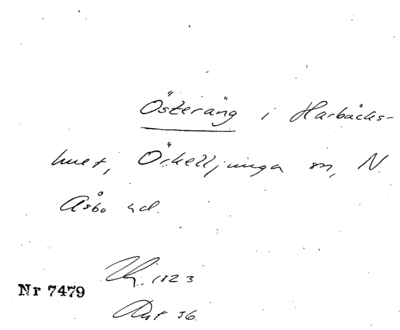 Österäng i Harbäcks-
huset, Örkelljunga sn, N.
Åsbo hd.
1823
Nr 7479
36